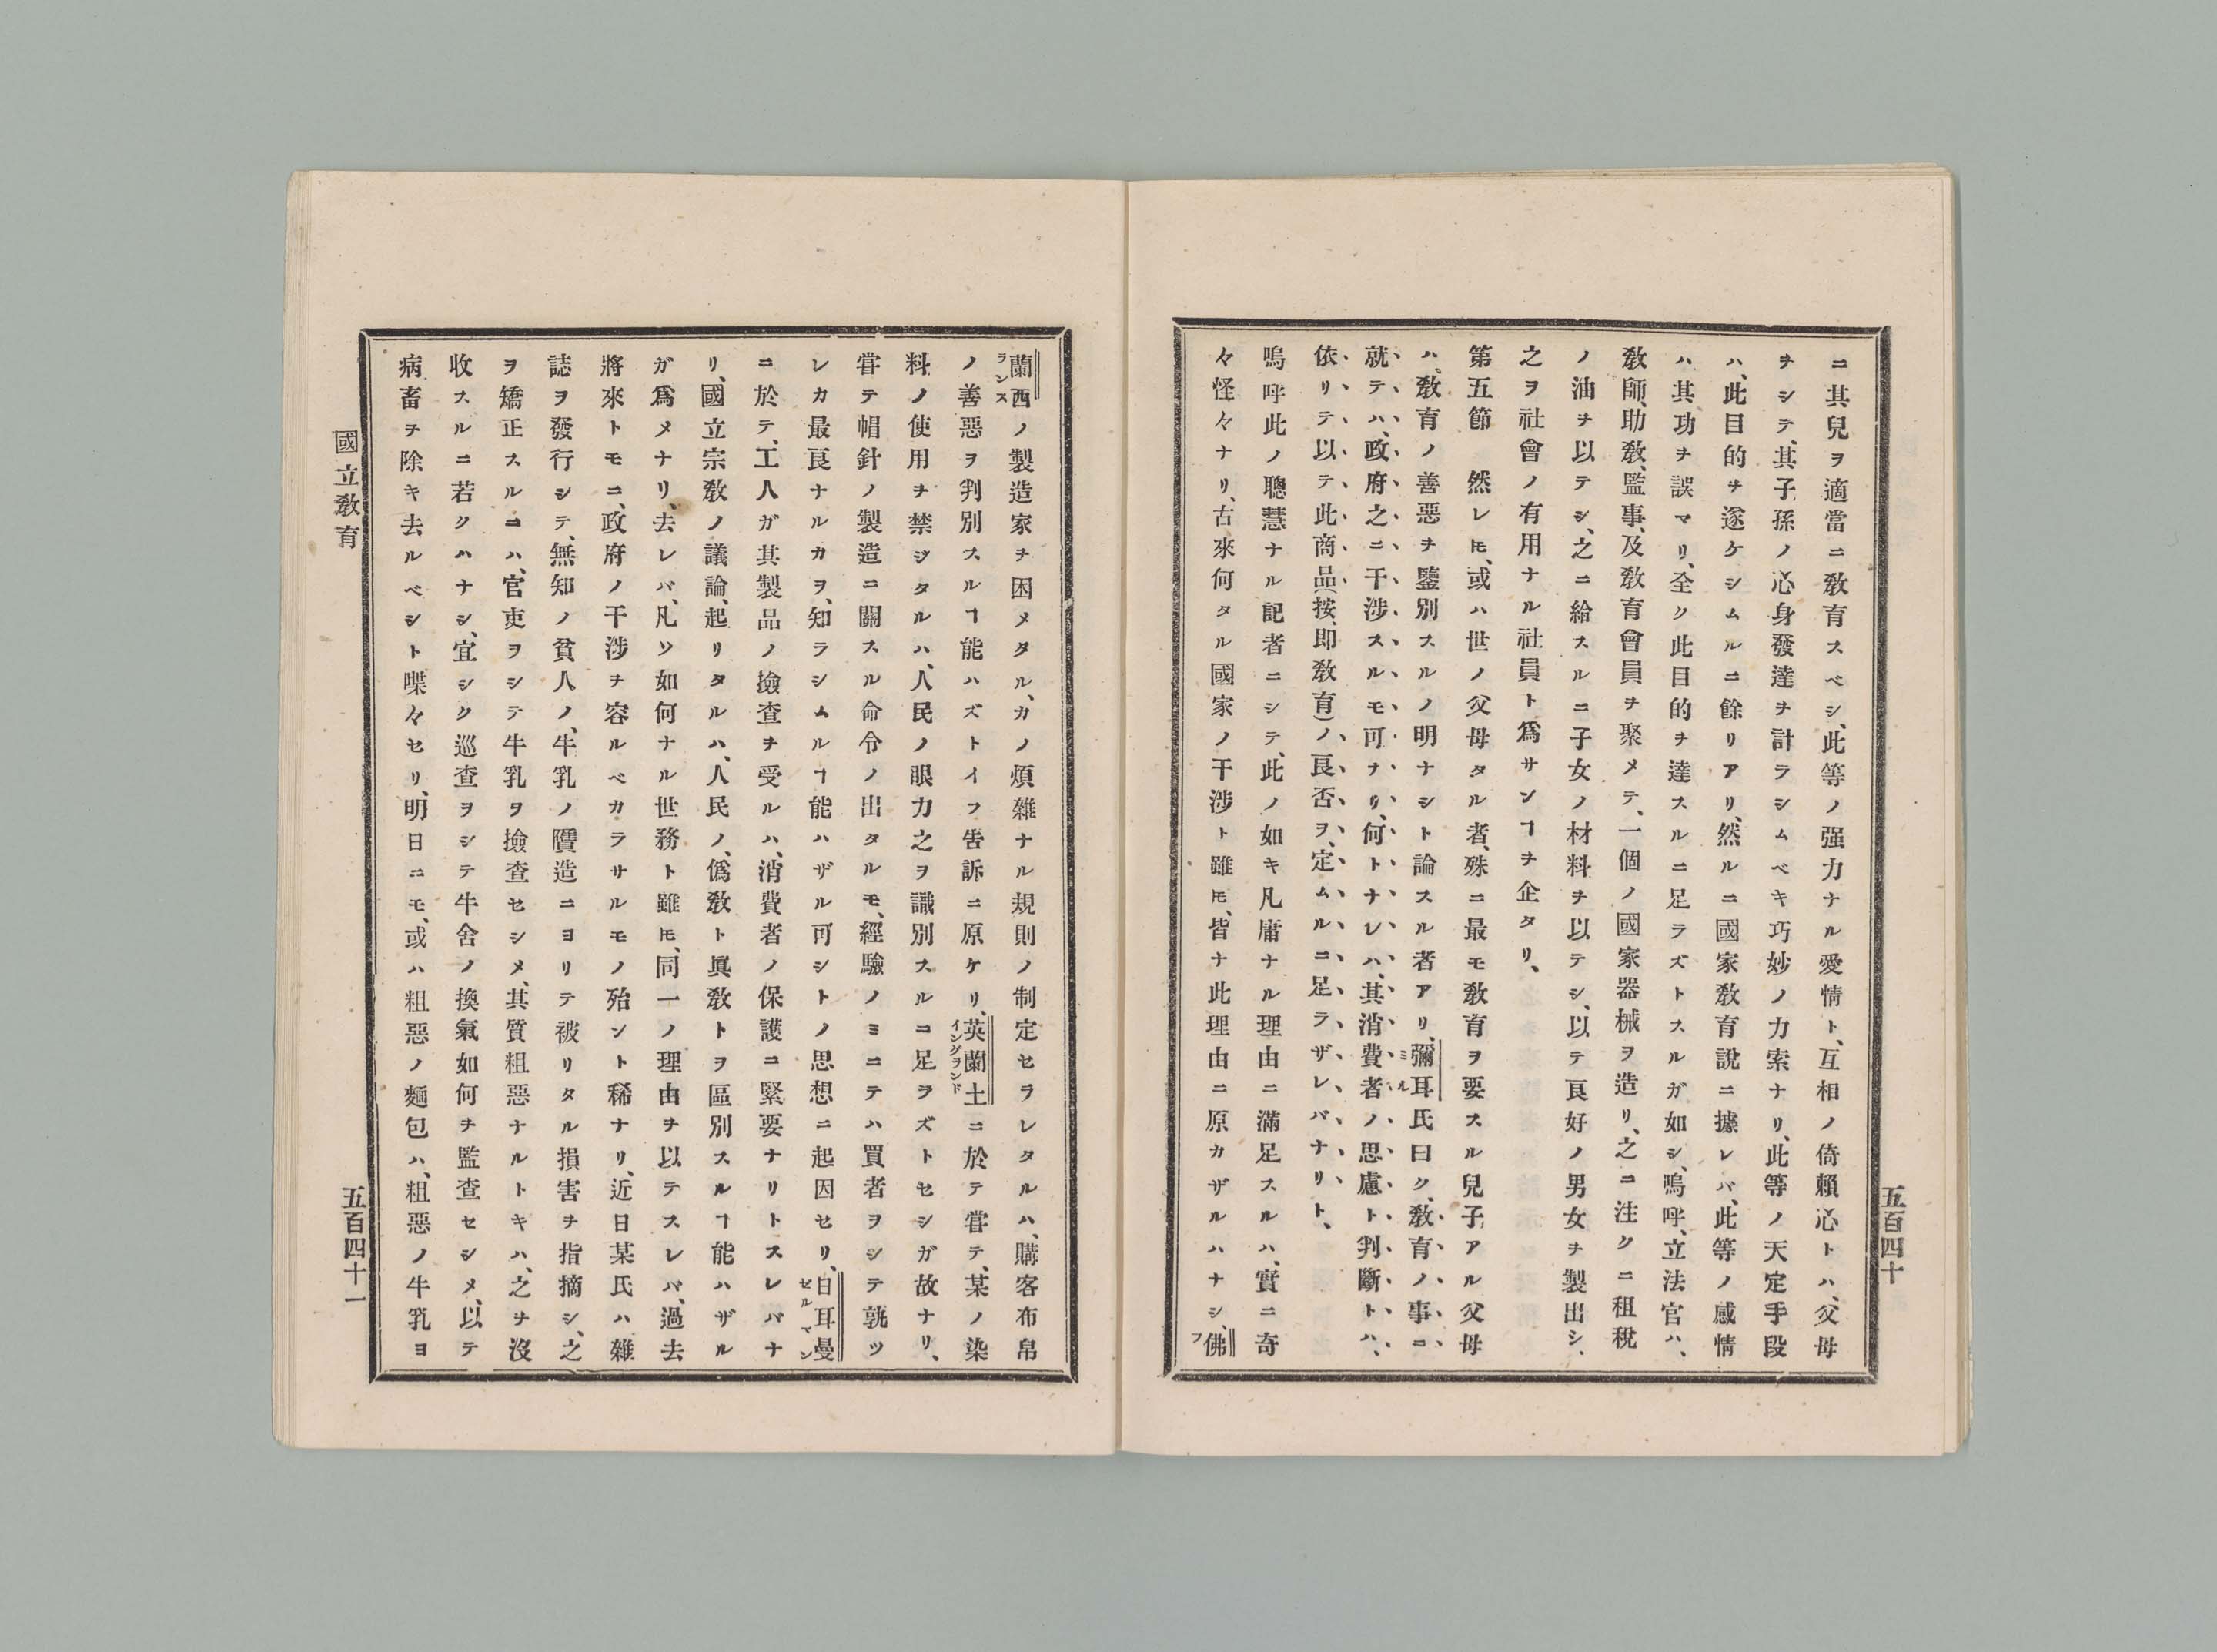 ニ其兒ヲ適當ニ敎育スベシ、此等ノ强力ナル愛情ト、互相ノ倚賴心トハ、父母
ヲシテ、其子孫ノ心身發達ヲ計ラシムベキ巧妙ノ力索ナリ、此等ノ天定手段
ハ、此目的ヲ遂ケシムルニ餘リアリ、然ルニ國家敎育說ニ據レバ、此等ノ感情
ハ其功ヲ誤マリ、全ク此目的ヲ達スルニ足ラズトスルガ如シ、嗚呼、立法官ハ、
敎師、助敎、監事、及敎育會員ヲ聚メテ、一個ノ國家器械ヲ造リ、之ニ注クニ租稅
ノ油ヲ以テシ、之ニ給スルニ子女ノ材料ヲ以テシ、以テ良好ノ男女ヲ製出シ、
之ヲ社會ノ有用ナル社員ト爲サンヿヲ企タリ、
第五節　然レ𪜈、或ハ世ノ父母タル者、殊ニ最モ敎育ヲ要スル兒子アル父母
ハ、敎育ノ善惡ヲ鑒別スルノ明ナシト論スル者アリ、彌耳氏曰ク、敎育ノ事ニ
ミル
就テハ、政府之ニ干涉スルモ可ナリ、何トナレハ、其消費者ノ思慮ト判斷トハ、
依リテ以テ此商品(按、即敎育)ノ、良否ヲ、定ムルニ足ラザレバナリト、
嗚呼此ノ聰慧ナル記者ニシテ、此ノ如キ凡庸ナル理由ニ滿足スルハ、實ニ奇
々怪々ナリ、古來何タル國家ノ干涉ト雖𪜈、皆ナ此理由ニ原カザルハナシ、佛
フ
五百四十
蘭西ノ製造家ヲ困メタル、カノ煩雜ナル規則ノ制定セラレタルハ、購客布帛
ランス
ノ善惡ヲ判別スルヿ能ハズトイフ吿訴ニ原ケリ、英蘭土ニ於テ嘗テ、某ノ染
イングランド
料ノ使用ヲ禁ジタルハ、人民ノ眼力之ヲ識別スルニ足ラズトセシガ故ナリ、
嘗テ帽針ノ製造ニ關スル命令ノ出タルモ、經驗ノミニテハ買者ヲシテ孰ツ
レカ最良ナルカヲ、知ラシムルヿ能ハザル可シトノ思想ニ起因セリ、日耳曼
ゼルマン
ニ於テ、工人ガ其製品ノ撿查ヲ受ルハ、消費者ノ保護ニ緊要ナリトスレバナ
リ、國立宗敎ノ議論、起リタルハ、人民ノ、僞敎ト眞敎トヲ區別スルヿ能ハザル
ガ爲メナリ、去レバ、凡ソ如何ナル世務ト雖𪜈、同一ノ理由ヲ以テスレバ、過去
將來トモニ、政府ノ干涉ヲ容ルベカラサルモノ殆ント稀ナリ、近日某氏ハ雜
誌ヲ發行シテ、無知ノ貧人ノ、牛乳ノ贋造ニヨリテ被リタル損害ヲ指摘シ、之
ヲ矯正スルニハ、官吏ヲシテ牛乳ヲ撿查セシメ、其質粗惡ナルトキハ、之ヲ沒
收スルニ若クハナシ、宜シク巡查ヲシテ牛舍ノ換氣如何ヲ監查セシメ、以テ
病畜ヲ除キ去ルベシト喋々セリ、明日ニモ、或ハ粗惡ノ麵包ハ、粗惡ノ牛乳ヨ
國立敎育
五百四十一